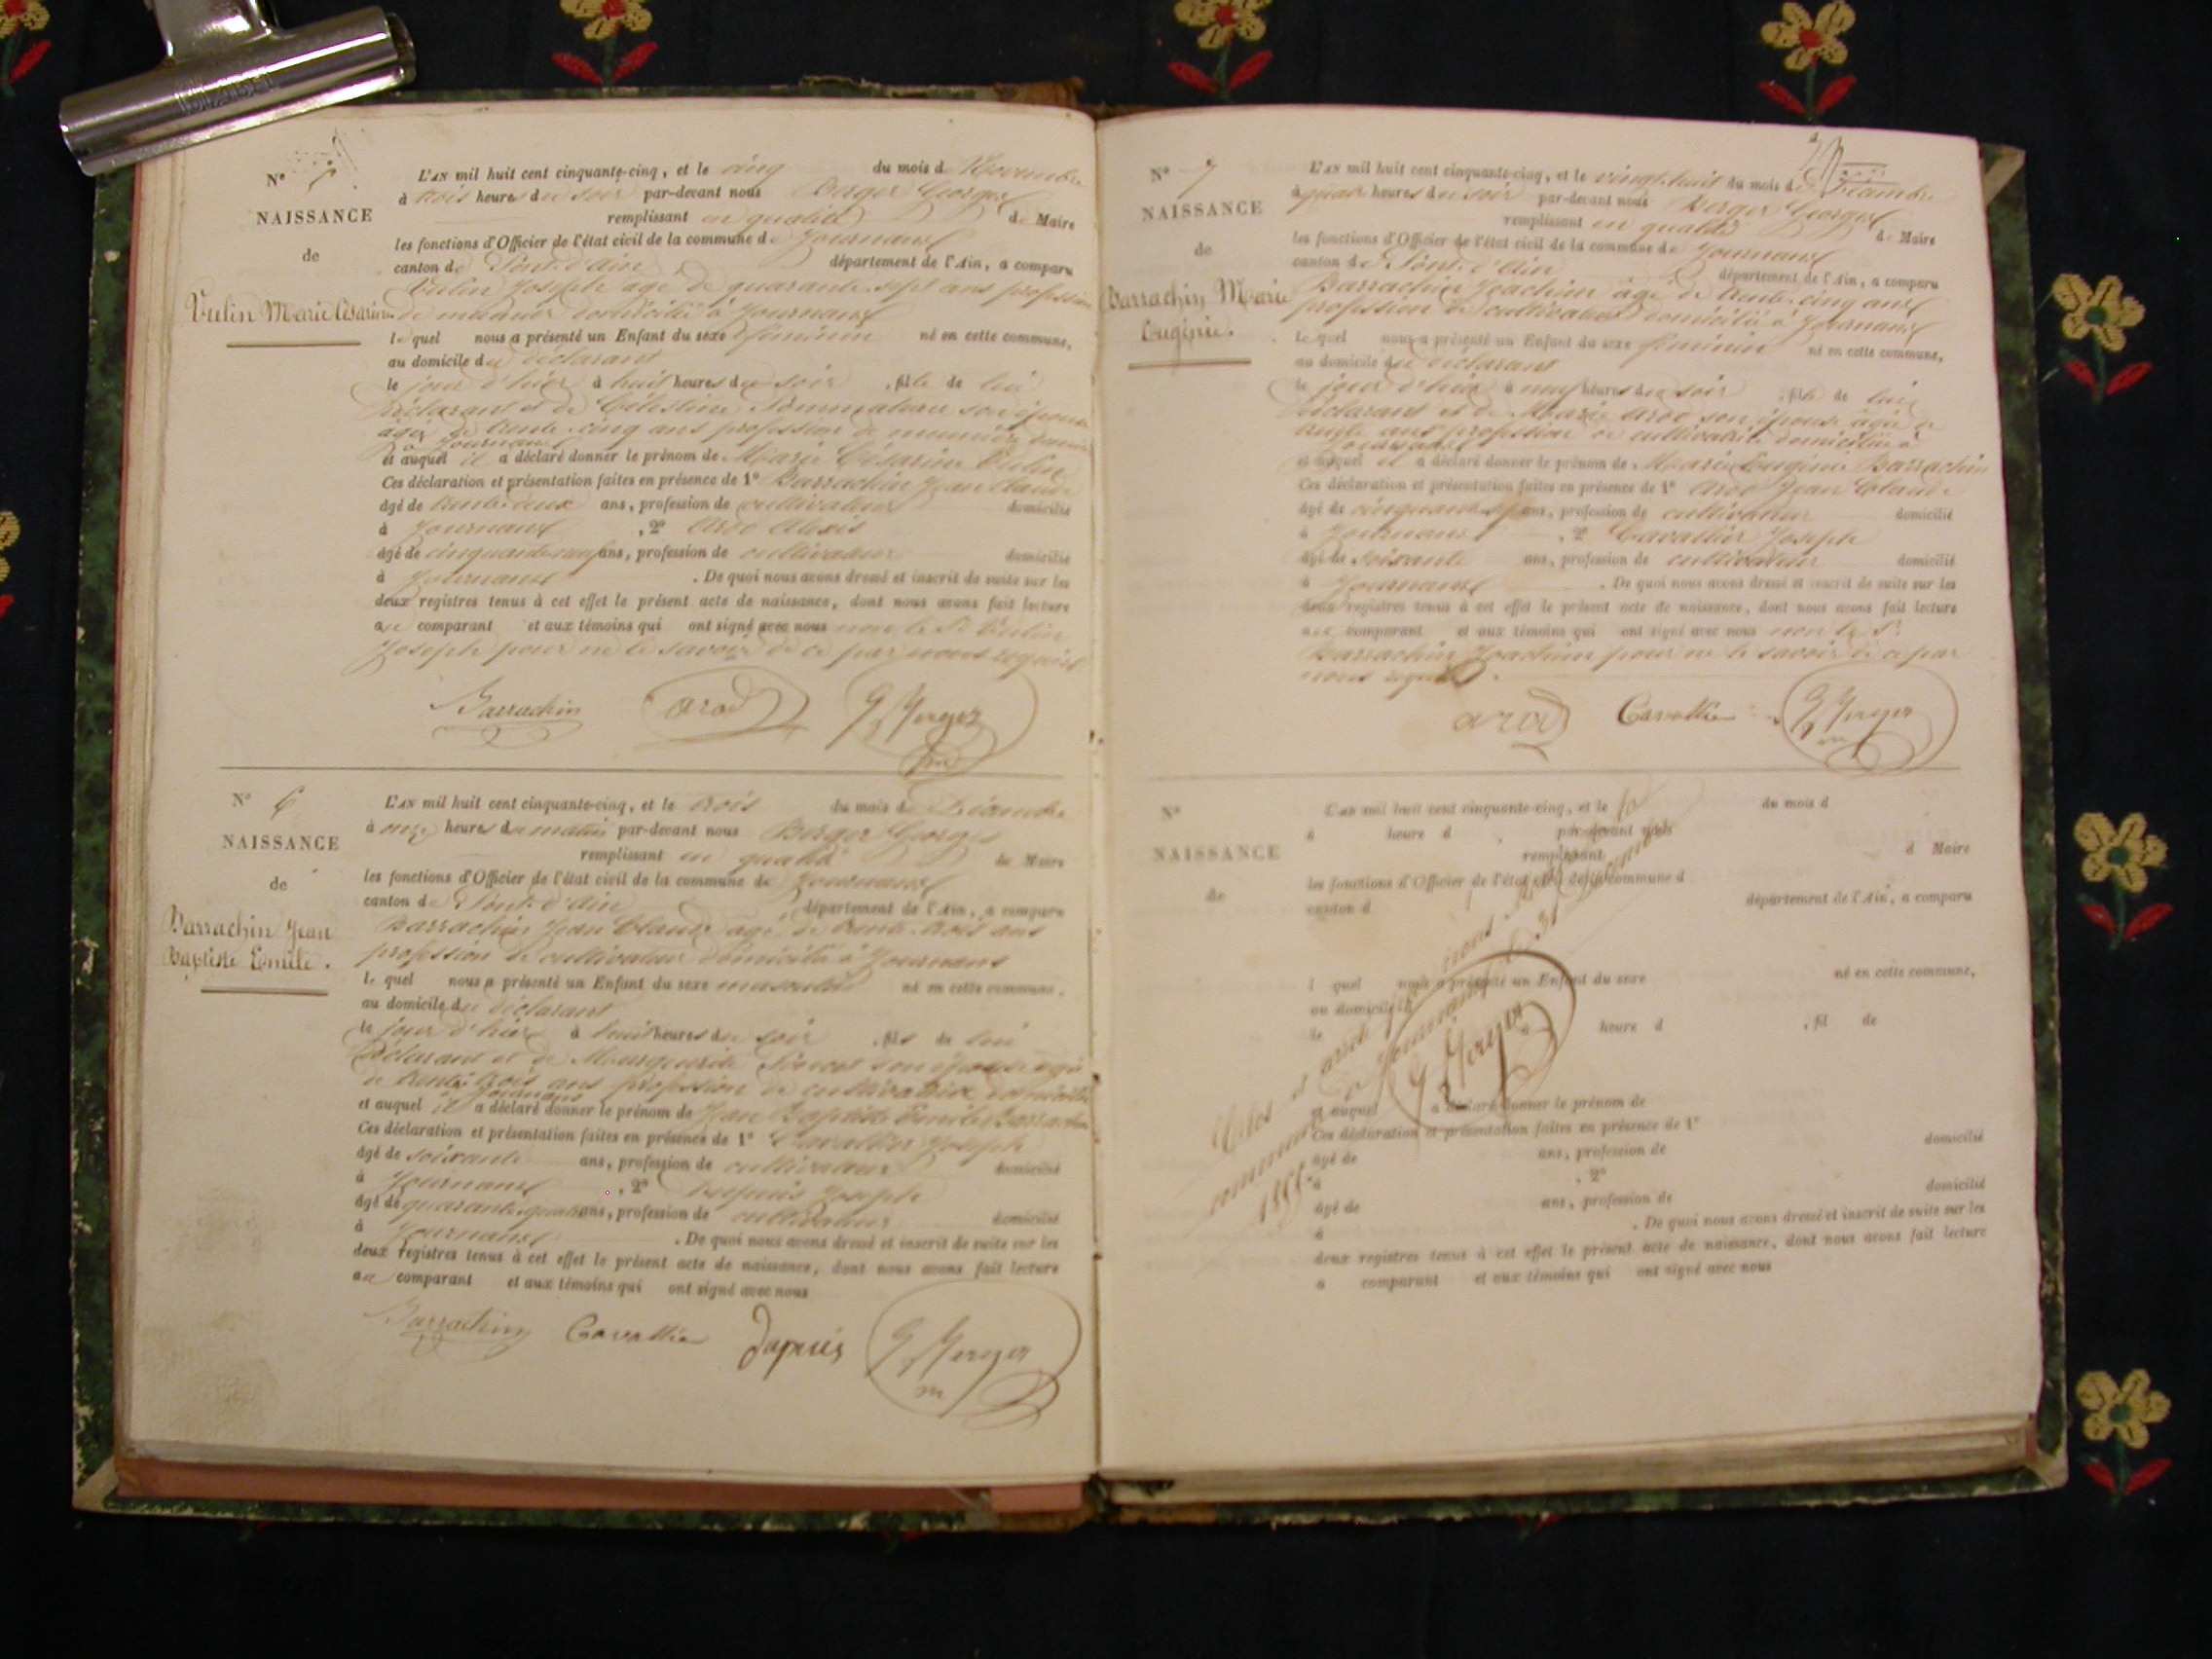 N° 5
NAISSANCE
de
Vulin Marie Césarine
L'AN mil huit cent cinquante-cinq, et le cinq du mois de Novembre
à trois heures du soir par-devant nous Berger Georges
remplissant en qualité de Maire
les fonctions d'Officier de l'état civil de la commune de Journans
canton de Pont-d'Ain département de l'Ain, a comparu
Vulin Joseph âgé de quarante sept ans profession
de meunier domicilié à Journans
lequel nous a présenté un Enfant du sexe féminin né en cette commune,
au domicile du déclarant
le jour d'hier à huit heures du soir, fille de lui
déclarant et de Célestine son épouse
âgée de trente-cinq ans profession de meunière
à Journans
et auquel il a déclaré donner le prénom de Marie Césarine Vulin
Ces déclaration et présentation faites en présence de 1° Barrachin Jean Claude
âgé de trente deux ans, profession de cultivateur domicilié
à Journans, 2° Arod Alexis
âgé de cinquante neuf ans, profession de cultivateur domicilié
à Journans. De quoi nous avons dressé et inscrit de suite sur les
deux registres tenus à cet effet le présent acte de naissance, dont nous avons fait lecture
au comparant et aux témoins qui ont signé avec nous non le Sr Vulin
Joseph pour ne le savoir de ce par nous requis
Barrachin arod G Berger
m
N° 6
NAISSANCE
de
Barrachin Jean
Baptiste Emile.
L'AN mil huit cent cinquante-cinq, et le trois du mois de Décembre
à onze heures du matin par-devant nous Berger Georges
remplissant en qualité de Maire
les fonctions d'Officier de l'état civil de la commune de Journans
canton de Pont-d'Ain département de l'Ain, a comparu
Barrachin Jean Claude âgé de trente trois ans
profession de cultivateur domicilié à Journans
lequel nous a présenté un Enfant du sexe masculin né en cette commune,
au domicile du déclarant
le jour d'hier à huit heures du soir, fils de lui
déclarant et de Marguerite son épouse âgée
de trente trois ans profession de cultivatrice domiciliée
à Journans
et auquel il a déclaré donner le prénom de Jean Baptiste Emile Barrachin
Ces déclaration et présentation faites en présence de 1° Cavallier Joseph
âgé de soixante ans, profession de cultivateur domicilié
à Journans, 2° Dupuis Joseph
âgé de quarante quatre ans, profession de cultivateur domicilié
à Journans. De quoi nous avons dressé et inscrit de suite sur les
deux registres tenus à cet effet le présent acte de naissance, dont nous avons fait lecture
au comparant et aux témoins qui ont signé avec nous
Barrachin Cavallier Dupuis G Berger
m
N° 7
NAISSANCE
de
Barrachin Marie
Eugénie.
L'AN mil huit cent cinquante-cinq, et le vingt-huit du mois de Décembre
à quatre heures du soir par-devant nous Berger Georges
remplissant en qualité de Maire
les fonctions d'Officier de l'état civil de la commune de Journans
canton de Pont-d'Ain département de l'Ain, a comparu
Barrachin Joachim âgé de trente-cinq ans
profession de cultivateur domicilié à Journans
lequel nous a présenté un Enfant du sexe féminin né en cette commune,
au domicile du déclarant
le jour d'hier à neuf heures du soir, fille de lui
déclarant et de Marie Arod son épouse âgée de
trente ans profession de cultivatrice domiciliée à
Journans
et auquel il a déclaré donner le prénom de Marie Eugénie Barrachin
Ces déclaration et présentation faites en présence de 1° Arod Jean Claude
âgé de cinquante ans, profession de cultivateur domicilié
à Journans, 2° Cavallier Joseph
âgé de soixante ans, profession de cultivateur domicilié
à Journans. De quoi nous avons dressé et inscrit de suite sur les
deux registres tenus à cet effet le présent acte de naissance, dont nous avons fait lecture
aux comparant et aux témoins qui ont signé avec nous non le Sr
Barrachin Joachim pour ne le savoir de ce par
nous requis.
arod Cavallier G Berger
m
N°
NAISSANCE
de
L'AN mil huit cent cinquante-cinq, et le du mois d
à heure d par-devant nous
remplissant d Maire
les fonctions d'Officier de l'état civil de la commune d
canton d département de l'Ain, a comparu
l quel nous a présenté un Enfant du sexe né en cette commune,
au domicile d
le à heure d, fil de
et auquel a déclaré donner le prénom de
Ces déclaration et présentation faites en présence de 1°
âgé de ans, profession de domicilié
à, 2°
âgé de ans, profession de domicilié
à. De quoi nous avons dressé et inscrit de suite sur les
deux registres tenus à cet effet le présent acte de naissance, dont nous avons fait lecture
a comparant et aux témoins qui ont signé avec nous
Clos et arrêté par nous
commune à Journans le 31
1855.
G Berger